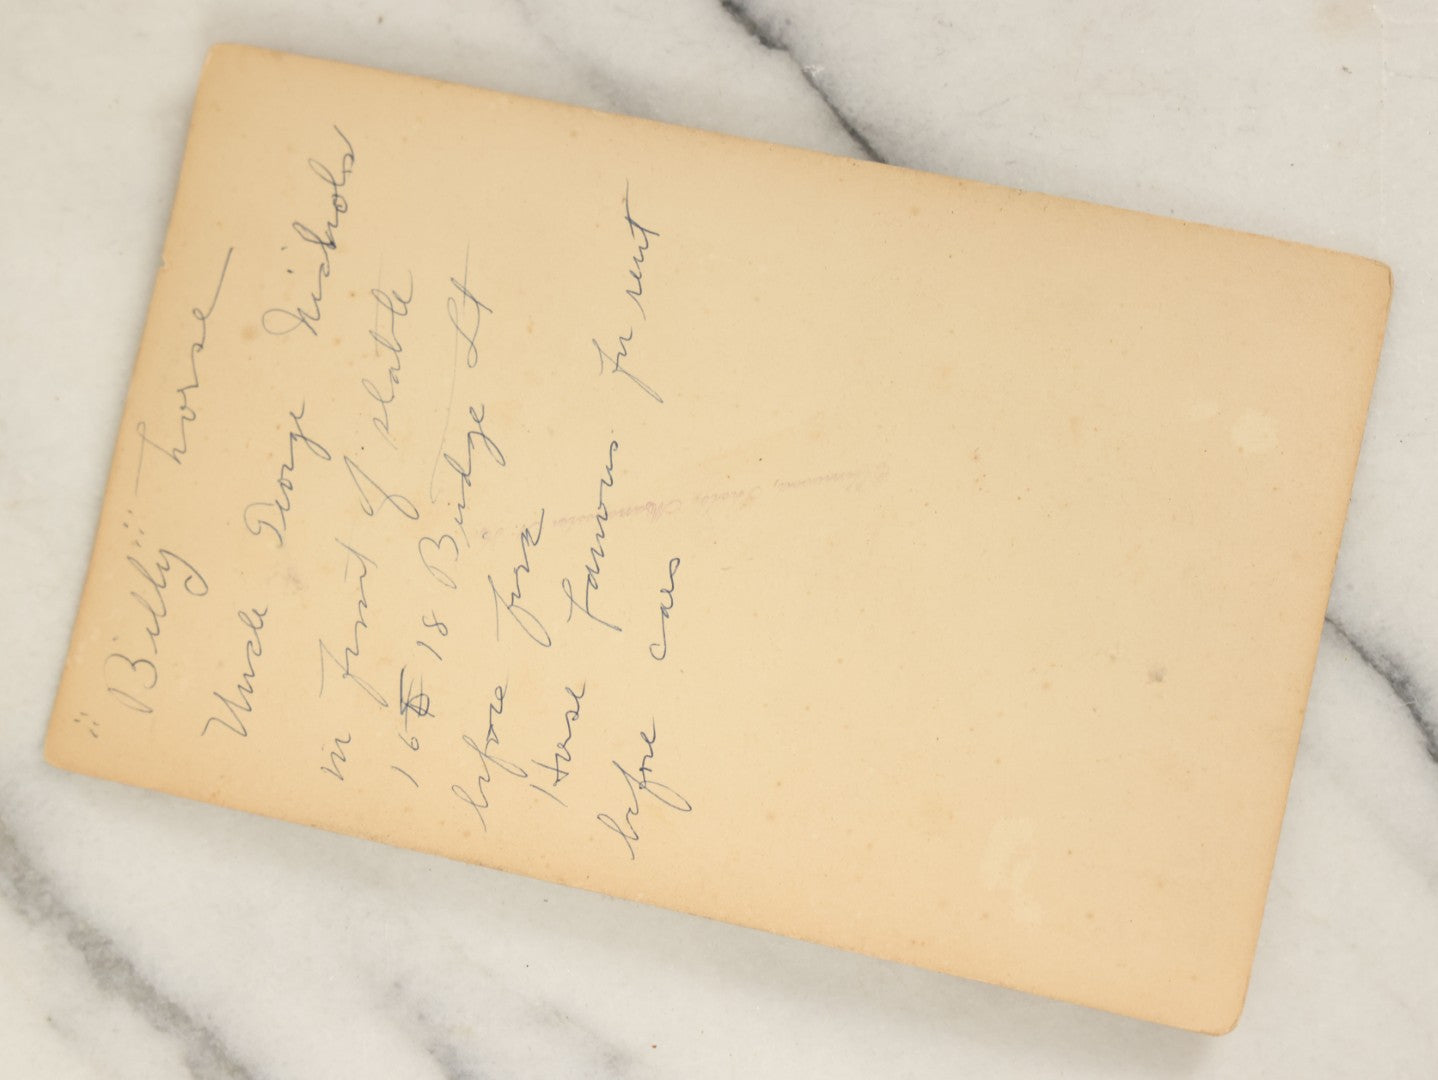 "Billy" horse
Uncle George Nichols
in front of stable
16 18 Bridge St
before fire
Horse famous for rent
before cars